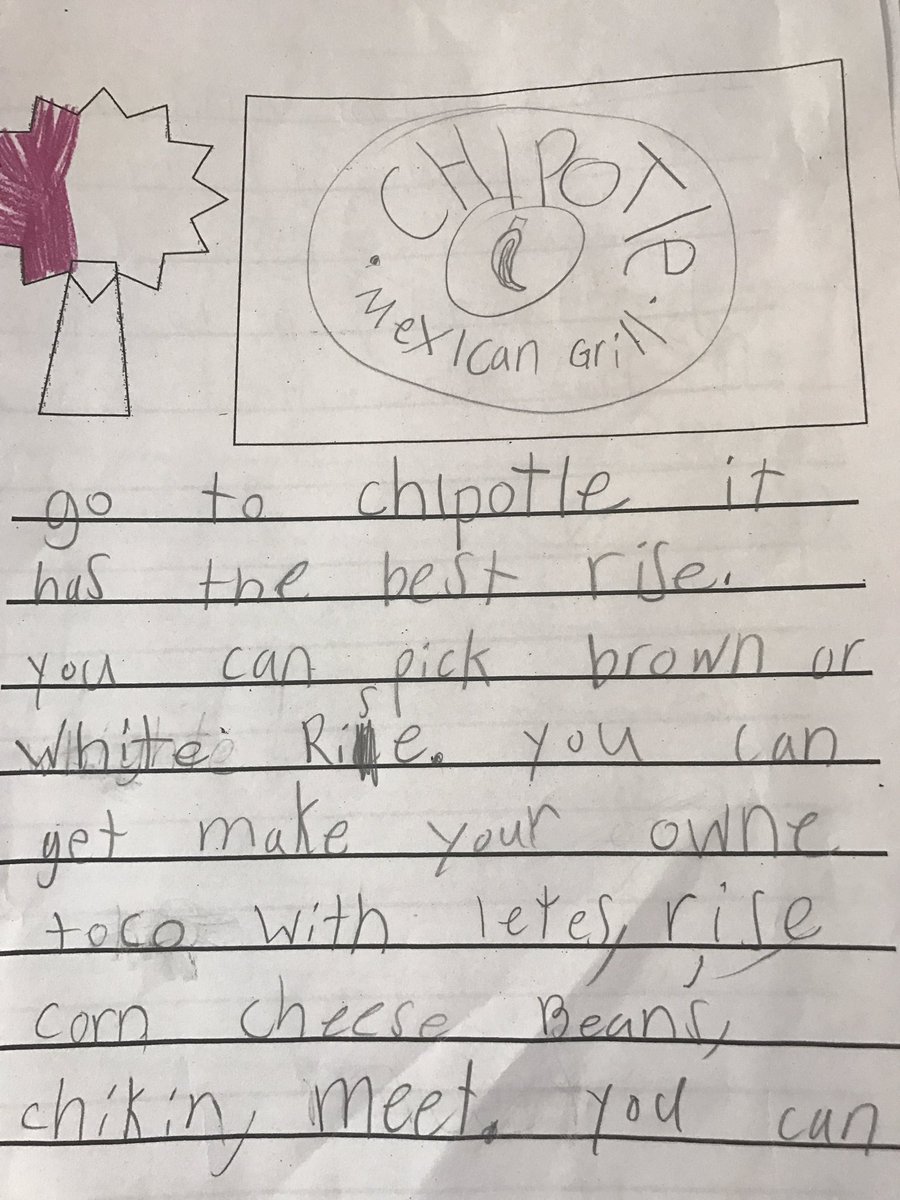 CHIPOTle
. Mexican Grill.
go to chipotle it
has the best rise.
you can pick brown or
White Rise. you can
get make your owne
toco with letes, rise,
corn cheese Beans,
chikin, meet. you can